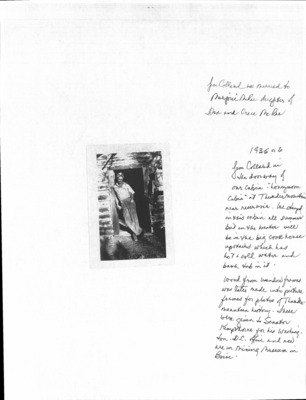 Jim Collord was married to
Marjorie McRae daughter of
Dan and Grace McRae
1926 n G
Jim Collord in
the doorway of
our cabin "honeymoon
cabin" at Thunder mountain
near reservoir. We stayed
in this cabin all summer
but in the winter
be in the big cook house
upstairs which had
hot & cold water and
bath tub in it.
Wood from window frames
was later made into picture
frames for photos of Thunder
mountain history. These
were given to Senator
for his Washing-
ton D.C. office and now
are in Mining Museum in
Boise.